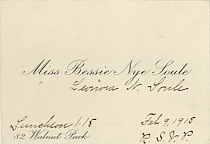 Miss Bessie Nye Soule
" Leonora N. Soule
Luncheon 1:15 Feb 9, 1915
82 Walnut Park R.S.V.P.